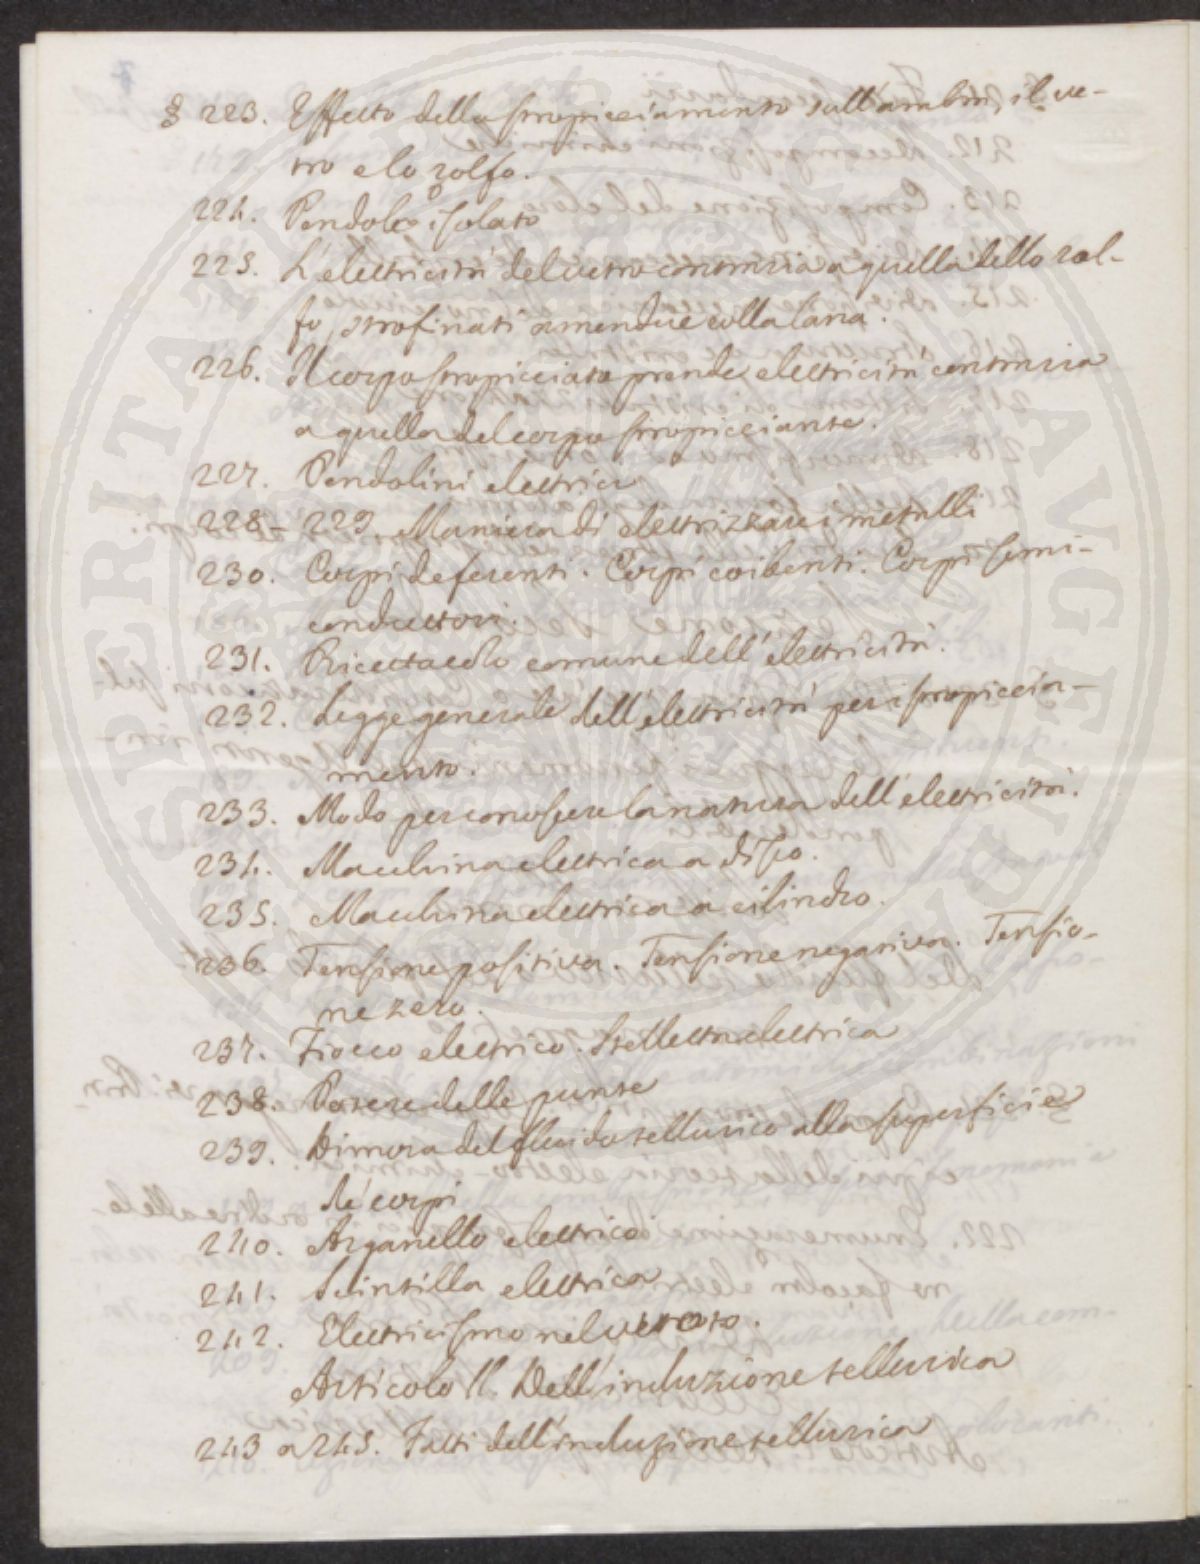 § 223. Effetto dello stropicciamento sull'ambra, il ve-
tro e lo zolfo.
224. Pendolo isolato
225. L'elettricità del vetro contraria a quella dello zol-
fo, strofinati amendue colla lana.
226. Il corpo stropicciato prende elettricità contraria
a quella del corpo stropicciante.
227. Pendolini elettrici
228-229. Maniera di elettrizzare i metalli
230. Corpi deferenti. Corpi coibenti. Corpi semi-
conduttori.
231. Ricettacolo comune dell'elettricità.
232. Legge generale dell'elettricità per istropiccia-
mento.
233. Modo per conoscere la natura dell'elettricità.
234. Macchina elettrica a disco.
235. Macchina elettrica a cilindro.
236. Tensione positiva. Tensione negativa. Tensio-
ne zero.
237. Fiocco elettrico. Stelletta elettrica
238. Potere delle punte
239. Dimora del fluido tellurico alla superficie
de' corpi
240. Arganello elettrico
241. Scintilla elettrica
242. Elettricismo nel vuoto.
Articolo II. Dell'induzione tellurica
243 a 245. Fatti dell'induzione tellurica
SPERITAT PERICVLA AVGENDIA